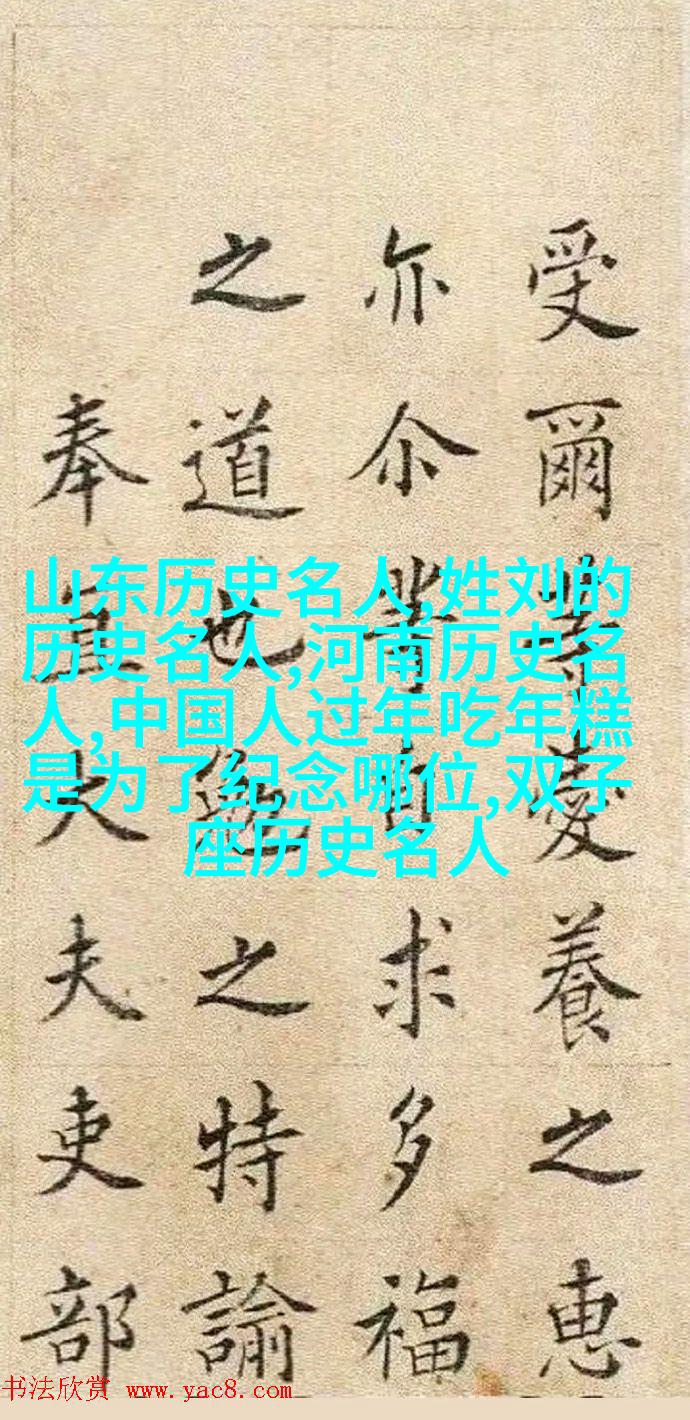 受爾等愛養之惠
亦尒等自求多福
之道也勉之特諭
奉宣大夫吏部
山东历史名人,姓刘的
历史名人,河南历史名
人,中国人过年吃年糕
是为了纪念哪位,双子
座历史名人
书法欣赏 www.yac8.com